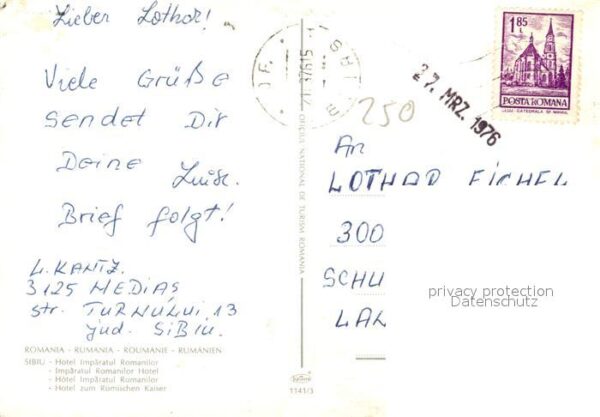 Lieber Lothar!
Viele Grüße
sendet Dir
Deine Luise.
Brief folgt!
L. KANTZ.
3125 MEDIAȘ
str. TURNULUI 13
jud. SIBIU.
ROMANIA - RUMANIA - ROUMANIE - RUMÄNIEN
SIBIU - Hotel Împăratul Romanilor
- Împăratul Romanilor Hotel
- Hôtel Împăratul Romanilor
- Hotel zum Römischen Kaiser
OFICIUL NATIONAL DE TURISM ROMANIA
1141/3
1,85 L
POSTA ROMANA
27. MRZ. 1976
250
An
LOTHAR EICHEL
300
SCHU
LAL
privacy protection
Datenschutz